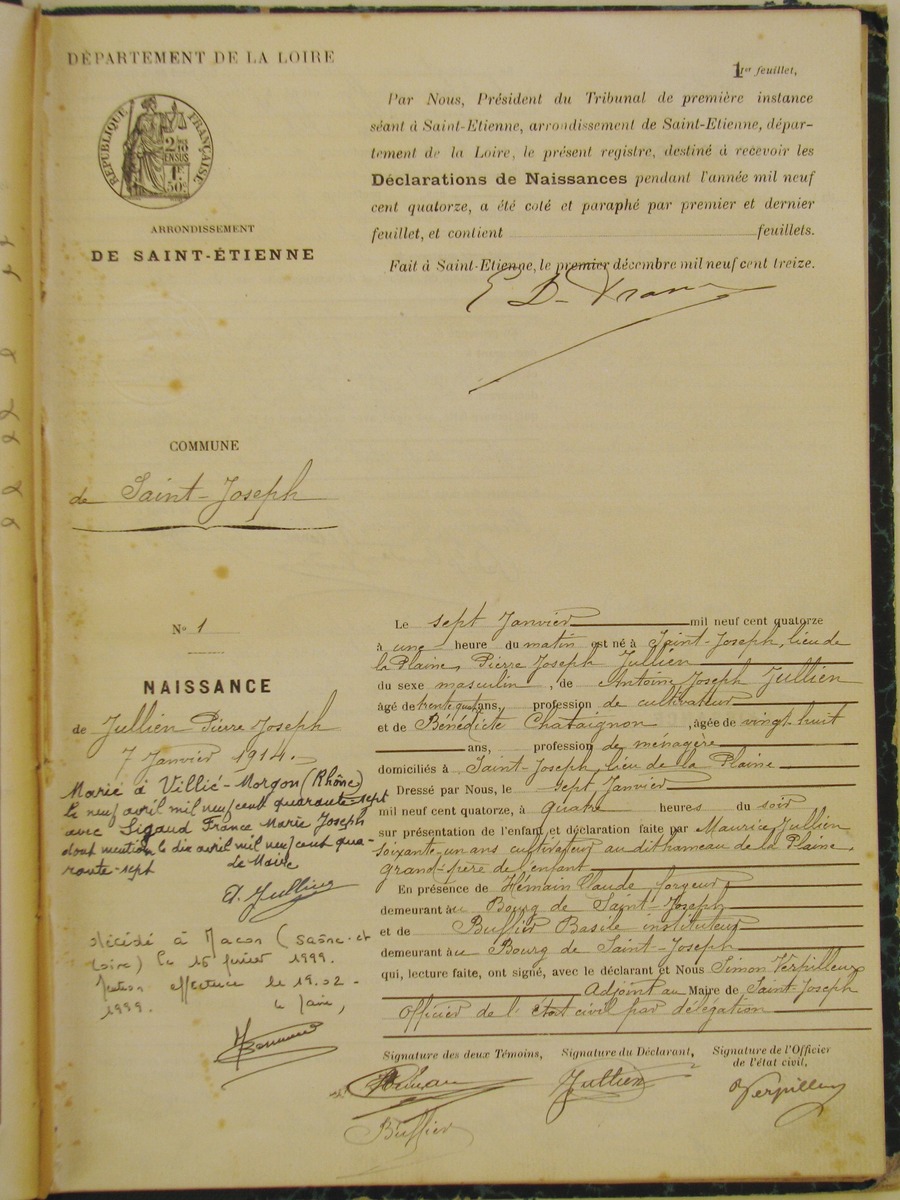 DÉPARTEMENT DE LA LOIRE
1er feuillet,
RÉPUBLIQUE FRANÇAISE
2/10 EN SUS
1F 50c
ARRONDISSEMENT
DE SAINT-ÉTIENNE
Par Nous, Président du Tribunal de première instance
séant à Saint-Etienne, arrondissement de Saint-Etienne, dépar-
tement de la Loire, le présent registre, destiné à recevoir les
Déclarations de Naissances pendant l'année mil neuf
cent quatorze, a été coté et paraphé par premier et dernier
feuillet, et contient feuillets.
Fait à Saint-Etienne, le premier décembre mil neuf cent treize.
COMMUNE
de Saint-Joseph
No 1
NAISSANCE
de Jullien Pierre Joseph
7 Janvier 1914.
Marié à Villié-Morgon (Rhône)
le neuf avril mil neuf cent quarante-sept
avec Ligaud France Marie Joseph
dont mention le dix avril mil neuf cent qua-
rante-sept le Maire
A. Jullien
décédé à Macon (Saône-et
Loire) le 15 février 1999.
Mention effectuée le 19.02-
1999. Le Maire,
Le sept Janvier mil neuf cent quatorze
à une heure du matin est né à Saint-Joseph, lieu de
la Plaine, Pierre Joseph Jullien
du sexe masculin, de Antoine Joseph Jullien
âgé de trente quatre ans, profession de cultivateur
et de Bénédicte Chataignon, âgée de vingt-huit
ans, profession de ménagère
domiciliés à Saint-Joseph, lieu de la Plaine
Dressé par Nous, le sept Janvier
mil neuf cent quatorze, à quatre heures du soir
sur présentation de l'enfant et déclaration faite par Maurice Jullien
soixante-un ans cultivateur au dit hameau de la Plaine,
grand-père de l'enfant
En présence de Hémain Claude forgeur
demeurant au Bourg de Saint-Joseph
et de Buffier Basile instituteur
demeurant au Bourg de Saint-Joseph
qui, lecture faite, ont signé, avec le déclarant et Nous Simon Verpilleux
Adjoint au Maire de Saint-Joseph
Officier de l'état civil par délégation
Signature des deux Témoins, Signature du Déclarant, Signature de l'Officier
de l'état civil,
Hémain Jullien Verpilleux
Buffier